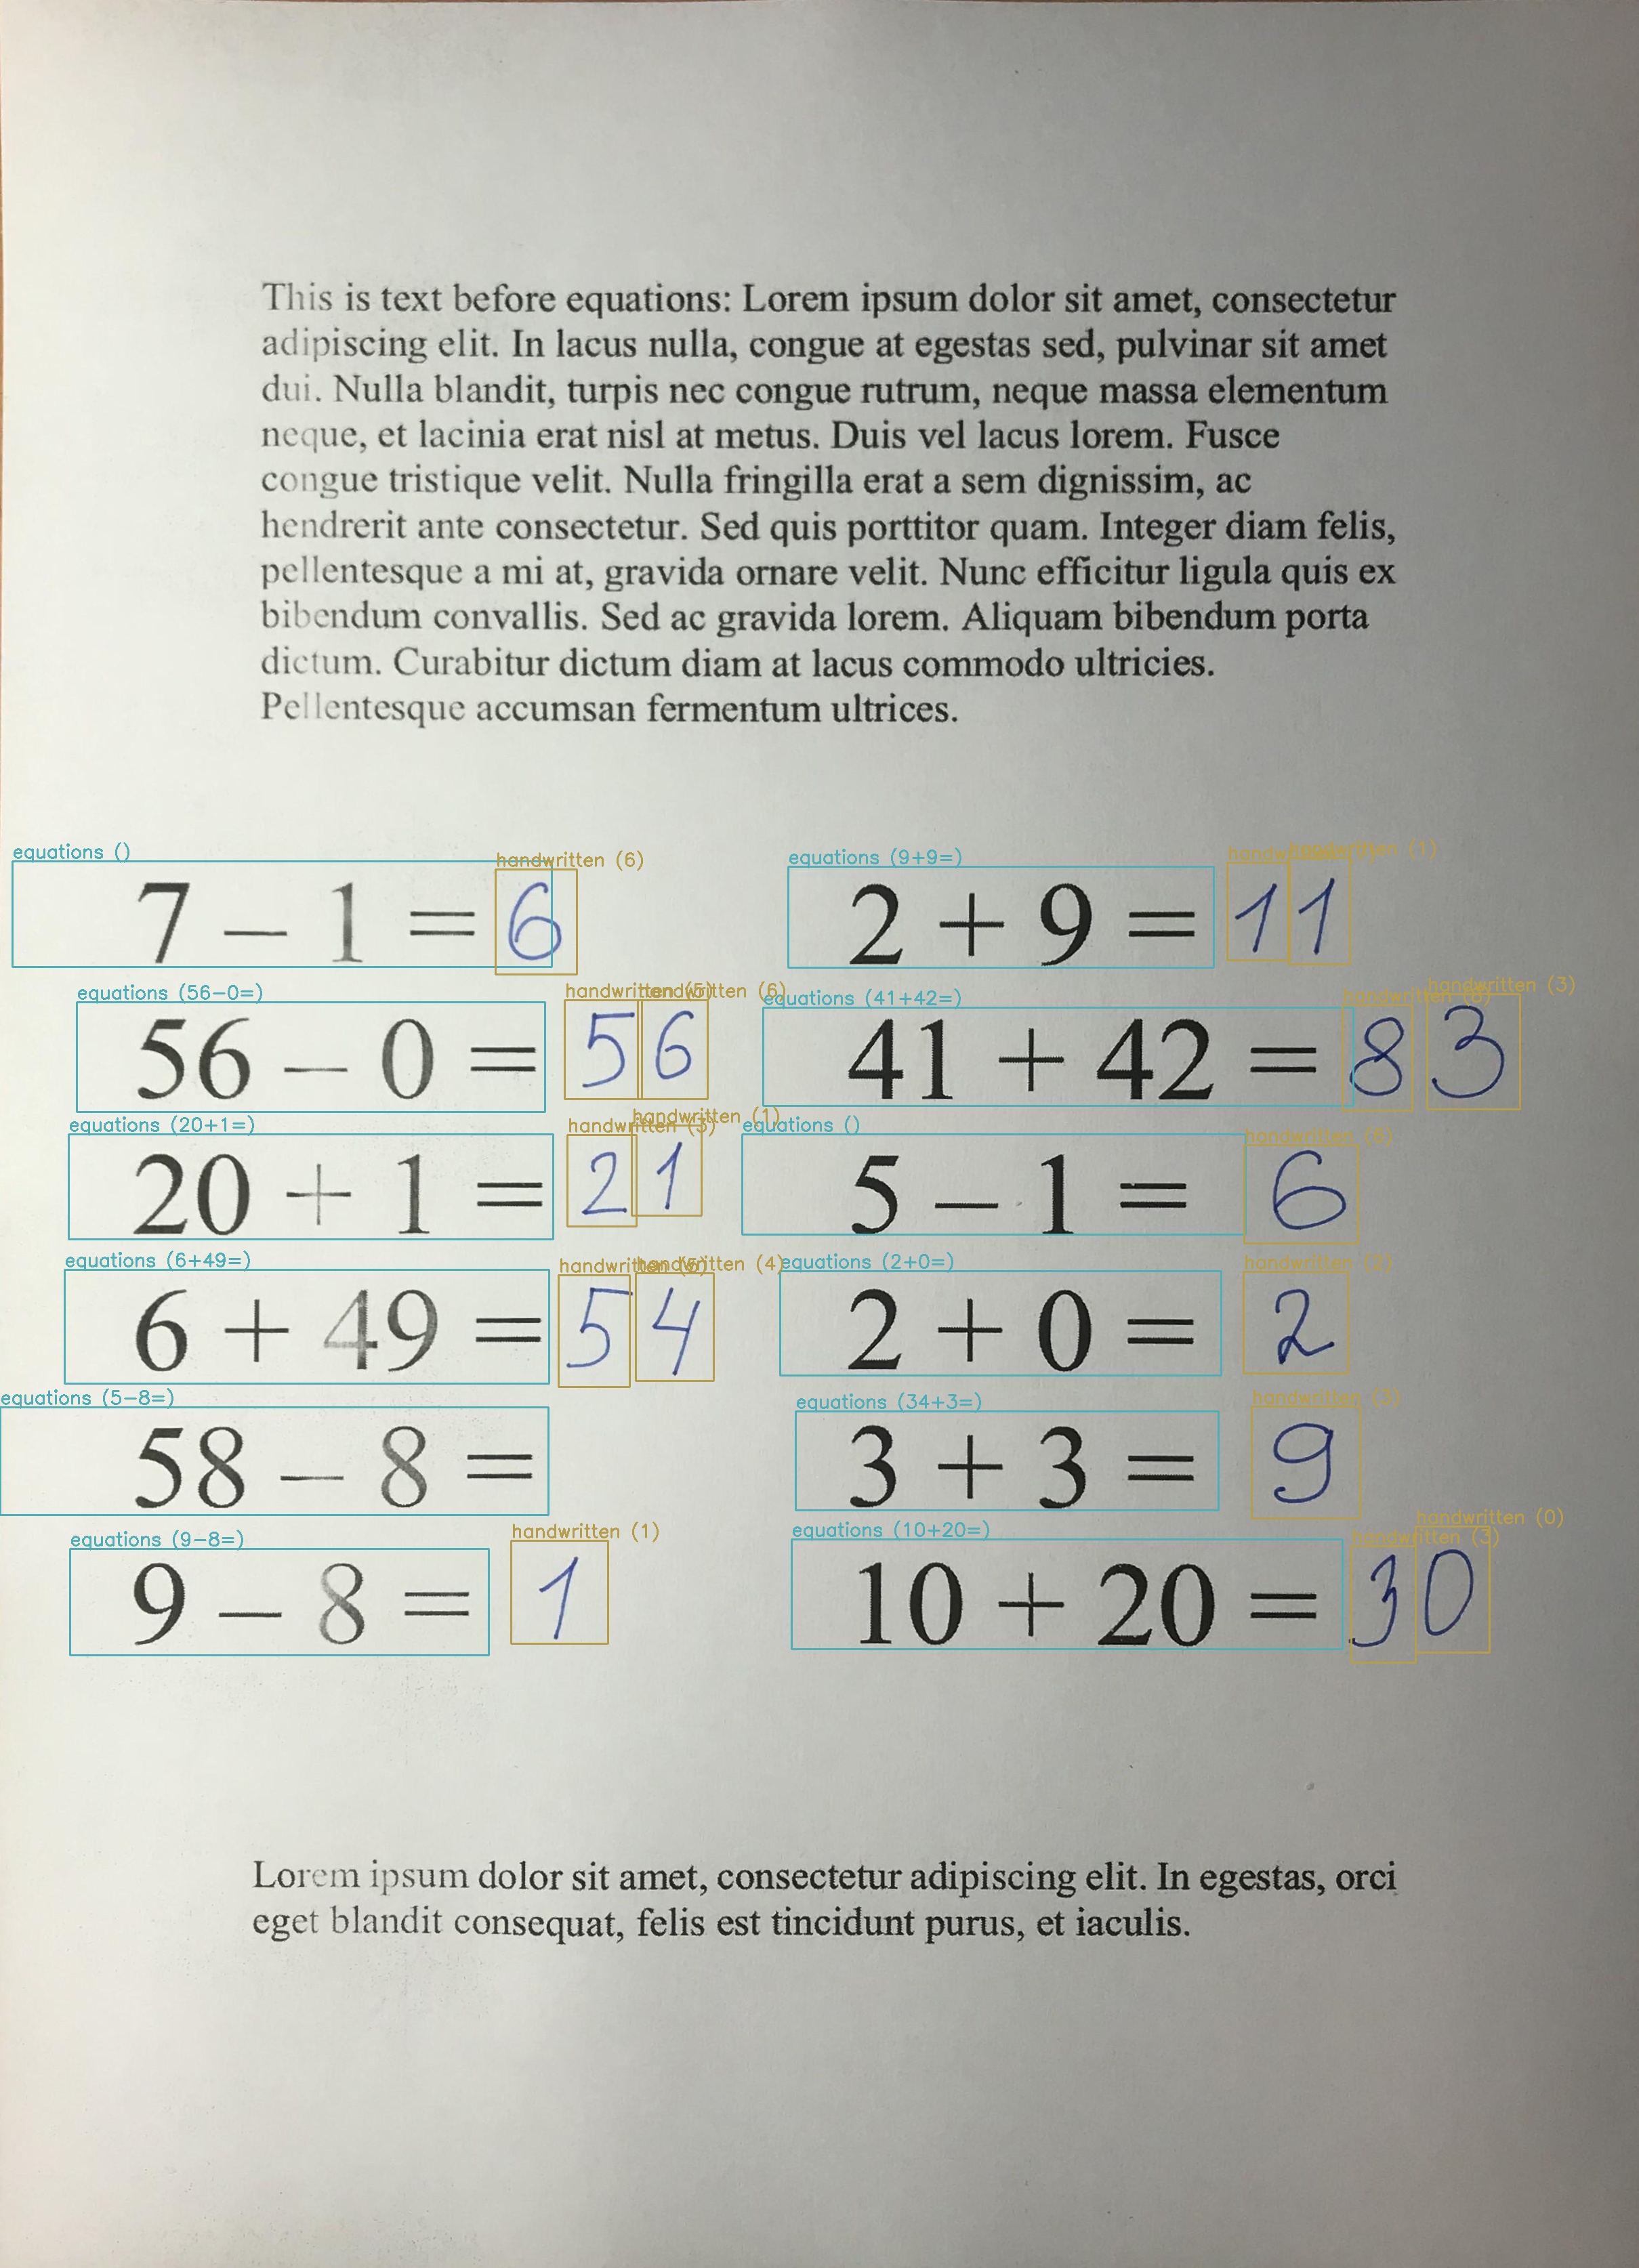 This is text before equations: Lorem ipsum dolor sit amet, consectetur
adipiscing elit. In lacus nulla, congue at egestas sed, pulvinar sit amet
dui. Nulla blandit, turpis nec congue rutrum, neque massa elementum
neque, et lacinia erat nisl at metus. Duis vel lacus lorem. Fusce
congue tristique velit. Nulla fringilla erat a sem dignissim, ac
hendrerit ante consectetur. Sed quis porttitor quam. Integer diam felis,
pellentesque a mi at, gravida ornare velit. Nunc efficitur ligula quis ex
bibendum convallis. Sed ac gravida lorem. Aliquam bibendum porta
dictum. Curabitur dictum diam at lacus commodo ultricies.
Pellentesque accumsan fermentum ultrices.
equations () handwritten (6) equations (9+9=) handwritten (1)
7 – 1 = 6 2 + 9 = 11
equations (56-0=) handwritten (5) handwritten (6) equations (41+42=) handwritten (8) handwritten (3)
56 – 0 = 56 41 + 42 = 83
equations (20+1=) handwritten (3) handwritten (1) equations () handwritten (6)
20 + 1 = 21 5 – 1 = 6
equations (6+49=) handwritten handwritten (4) equations (2+0=) handwritten (2)
6 + 49 = 54 2 + 0 = 2
equations (5-8=) equations (34+3=) handwritten (3)
58 – 8 = 3 + 3 = 9
equations (9-8=) handwritten (1) equations (10+20=) handwritten (3) handwritten (0)
9 – 8 = 1 10 + 20 = 30
Lorem ipsum dolor sit amet, consectetur adipiscing elit. In egestas, orci
eget blandit consequat, felis est tincidunt purus, et iaculis.